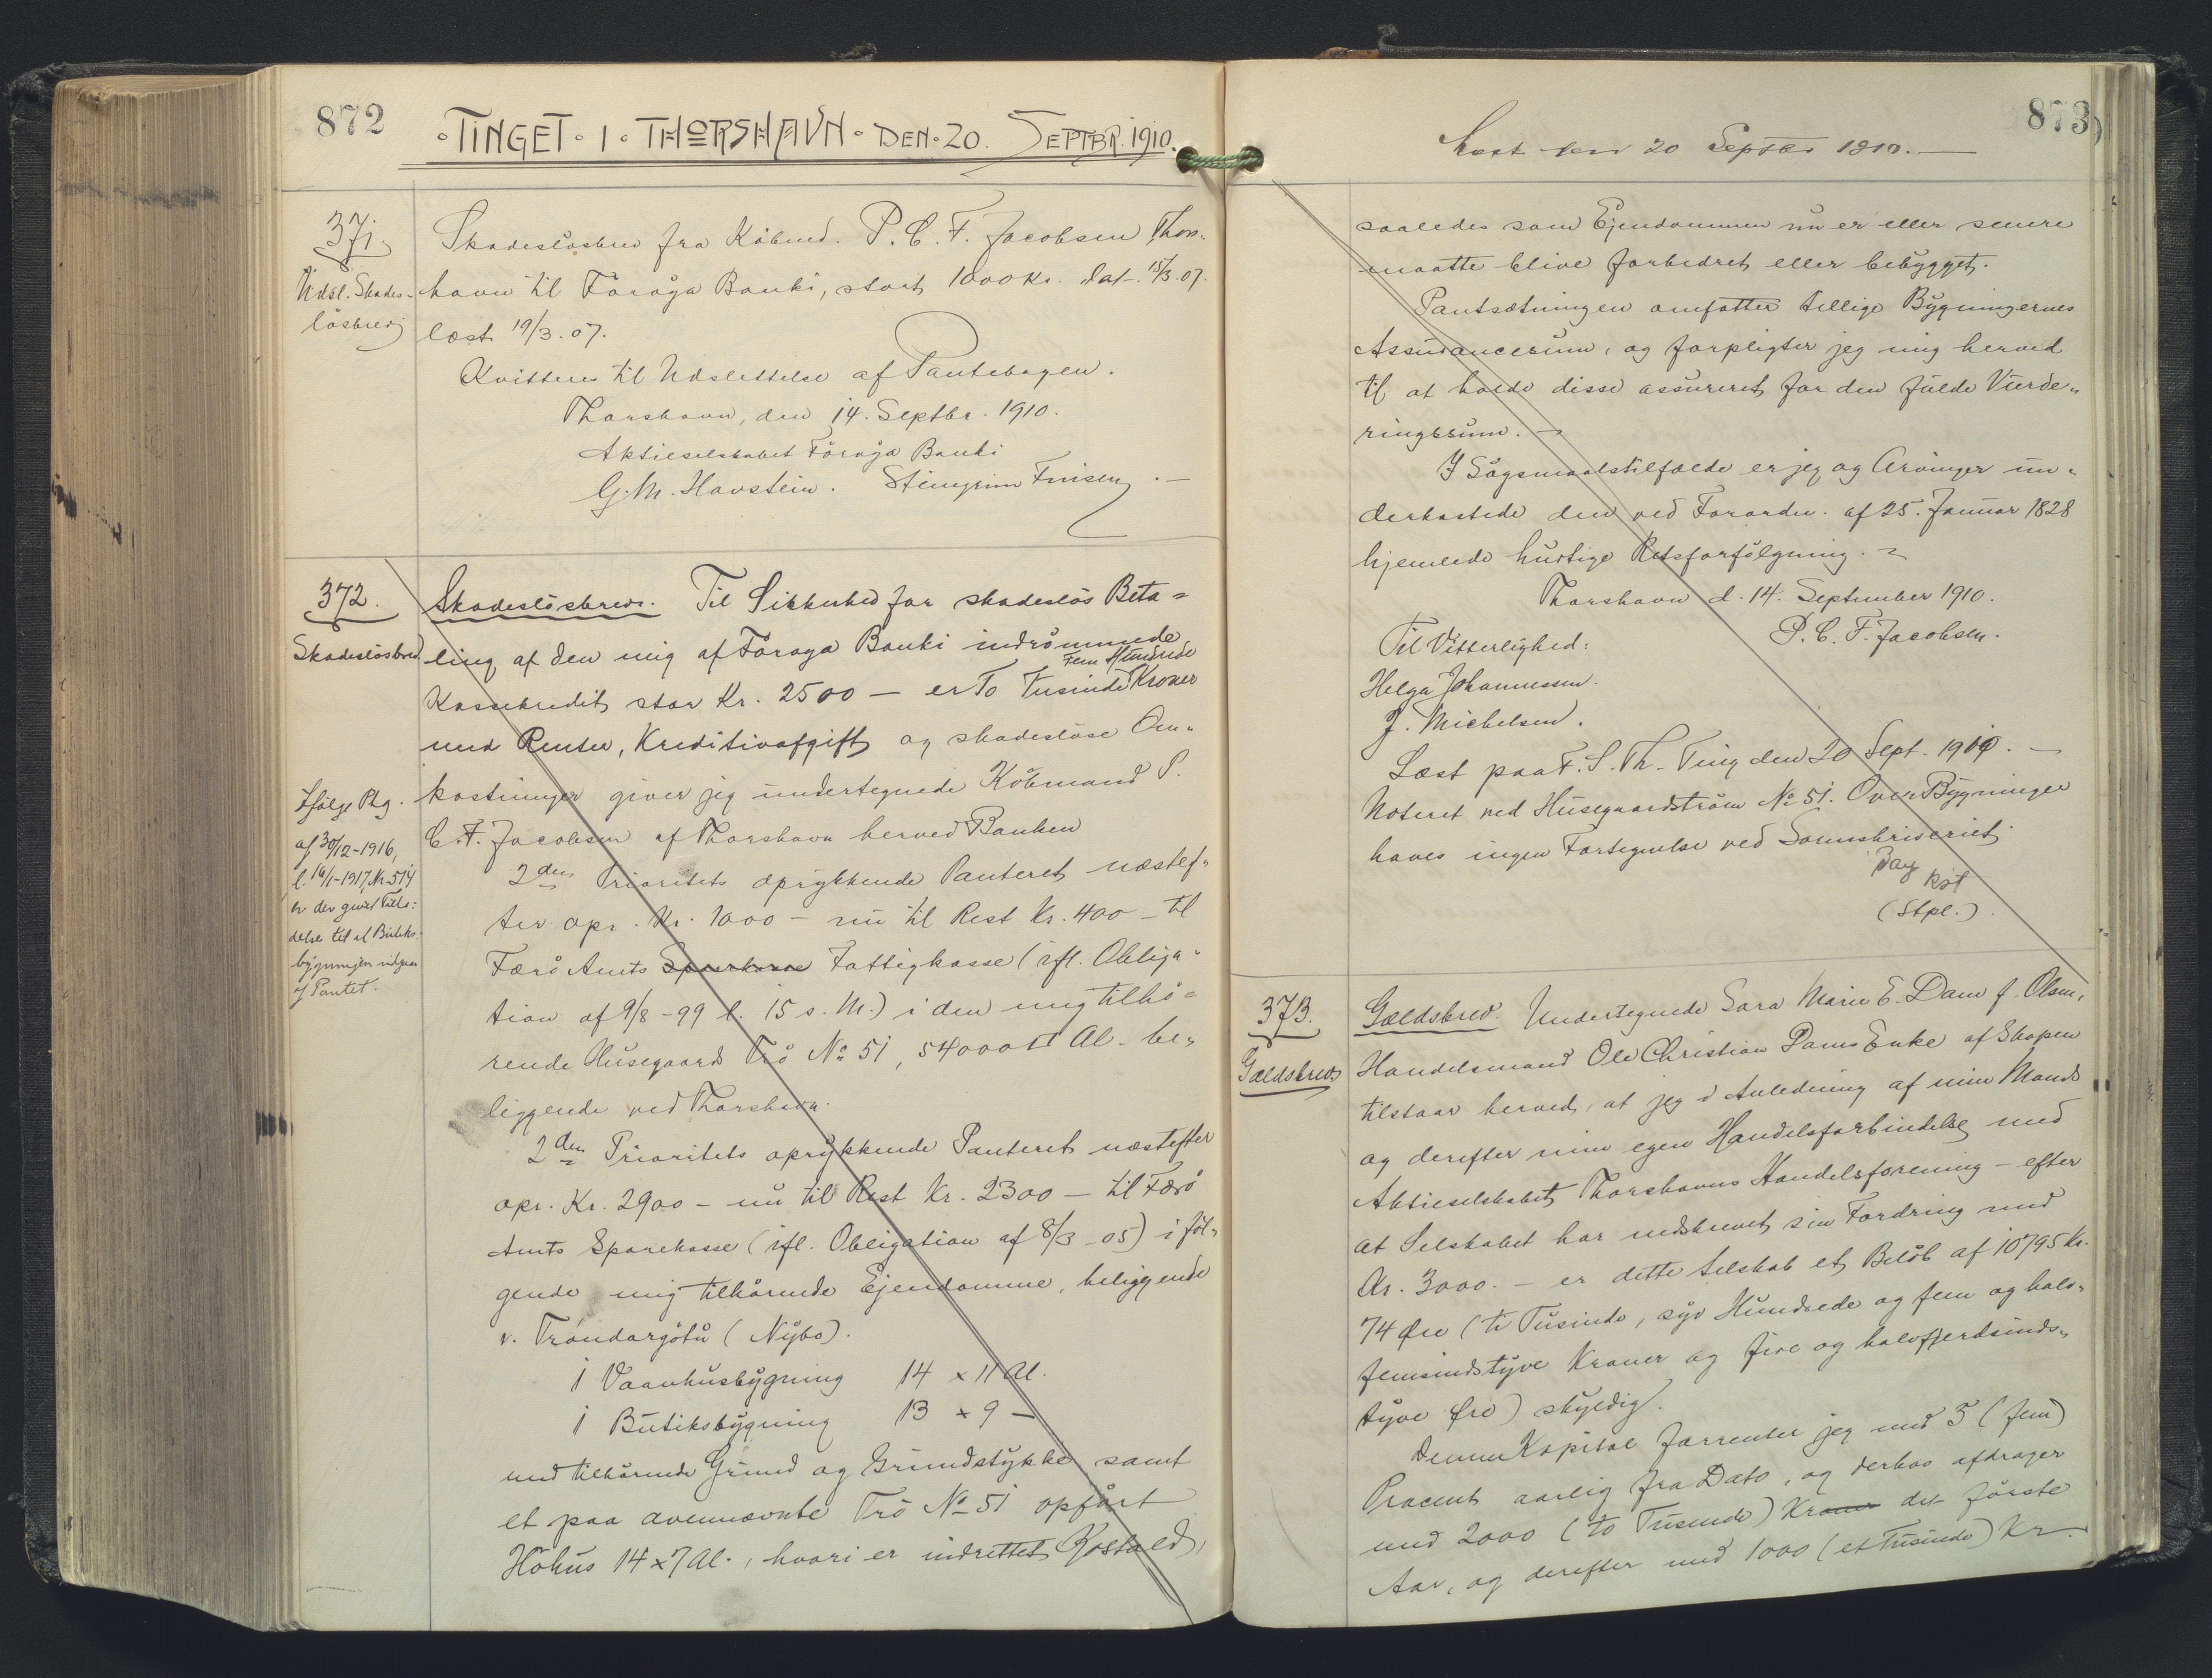 872
TINGET I THORSHAVN DEN 20. SEPTBR. 1910.
371.
Udsl. Skades-
lösbrev
Skadeslösbrev fra Köbmd. P. C. F. Jacobsen Thors-
havn til Föroya Banki, stort 1000 Kr. dat. 15/3.07.
læst 19/3.07.
Kvitteres til Udslettelse af Pantebogen.
Thorshavn, den 14. Septbr. 1910.
Aktieselskabet Föroya Banki
G. M. Havstein. Steingrim Finsen.
372.
Skadeslösbrev
Skadeslösbrev. Til Sikkerhed for skadeslös Beta=
ling af den mig af Föroya Banki indrömmede
Kassekredit stor Kr. 2500 — er To Tusinde Fem Hundrede Kroner
med Renter, Kreditivafgift og skadeslöse Om-
kostninger giver jeg undertegnede Köbmand P.
C. F. Jacobsen af Thorshavn herved Banken
2den Prioritets oprykkende Panteret næstef-
ter opr. Kr. 1000 — nu til Rest Kr. 400 — til
Færö Amts Sparekasse Fattigkasse (ifl. Obliga-
tion af 9/8 -99 l. 15 s. M.) i den mig tilhö=
rende Husegaard Trö No 51, 54000 □ Al. be-
liggende ved Thorshavn.
2den Prioritets oprykkende Panteret næstefter
opr. Kr. 2900 — nu til Rest Kr. 2300 — til Færö
Amts Sparekasse (ifl. Obligation af 8/3 -05) i föl-
gende mig tilhörende Ejendomme, beliggende
v. Trondargötu (Nybo).
1 Vaanhusbygning 14 x 11 Al.
1 Butiksbygning 13 x 9 —
med tilhörende Grund og Grundstykke samt
et paa ovennævnte Trö No 51 opfört
Höhus 14 x 7 Al., hvori er indrettet Kostald,
Ifölge Ptg.
af 30/12-1916,
l. 16/1-1917, Nr. 514
er der givet Tilla=
delse til at Butiks-
bygningen udgaar
af Pantet.
873
Læst den 20 Septbr 1910.
saaledes som Ejendommen nu er eller senere
maatte blive forbedret eller bebygget.
Pantsætningen omfatter tillige Bygningernes
Assurancesum, og forpligter jeg mig herved
til at holde disse assureret for den fulde Vurde-
ringssum.
I Sögsmaalstilfælde er jeg og Arvinger un-
derkastede den ved Forordn. af 25. Januar 1828
hjemlede hurtige Retsforfölgning.
Thorshavn d. 14. September 1910.
P. C. F. Jacobsen.
Til Vitterlighed:
Helga Johannessen.
J. Michelsen.
Læst paa F. S. Th. Ting den 20 Sept. 1910. —
Noteret ved Husegaardström No 51. Over Bygninger
haves ingen Fortegnelse ved Sorenskriveriet.
Day
Kst
(Stpl.).
373.
Gældsbrev
Gældsbrev. Undertegnede Sara Marie E. Dam f. Olsen,
Handelsmand Ole Christian Dams Enke af Skopen
tilstaar herved, at jeg i Anledning af min Mands
og derefter min egen Handelsforbindelse med
Aktieselskabet Thorshavns Handelsforening — efter
at Selskabet har nedskrevet sin Fordring med
Kr. 3000. — er dette Selskab et Belöb af 10795 Kr.
74 Øre (ti Tusinde, syv Hundrede og fem og halv-
femsindstyve Kroner og fire og halvfjerdsinds-
tyve Øre) skyldig.
Denne Kapital forrenter jeg med 5 (fem)
Procent aarlig fra Dato, og derhos afdrager
med 2000 (to Tusinde) Kroner det förste
Aar, og derefter med 1000 (et Tusinde) Kr.